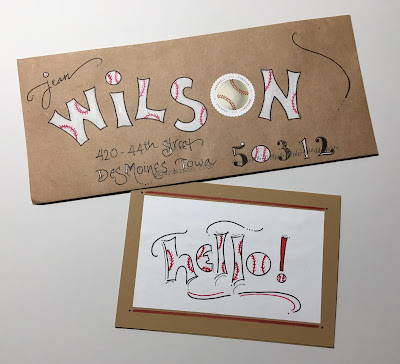 jean
WILSON
420-44th street
Des Moines Iowa 50312
hello!